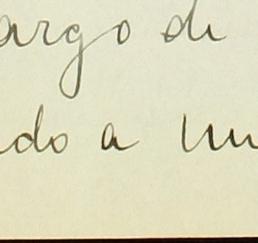 argo di
do a